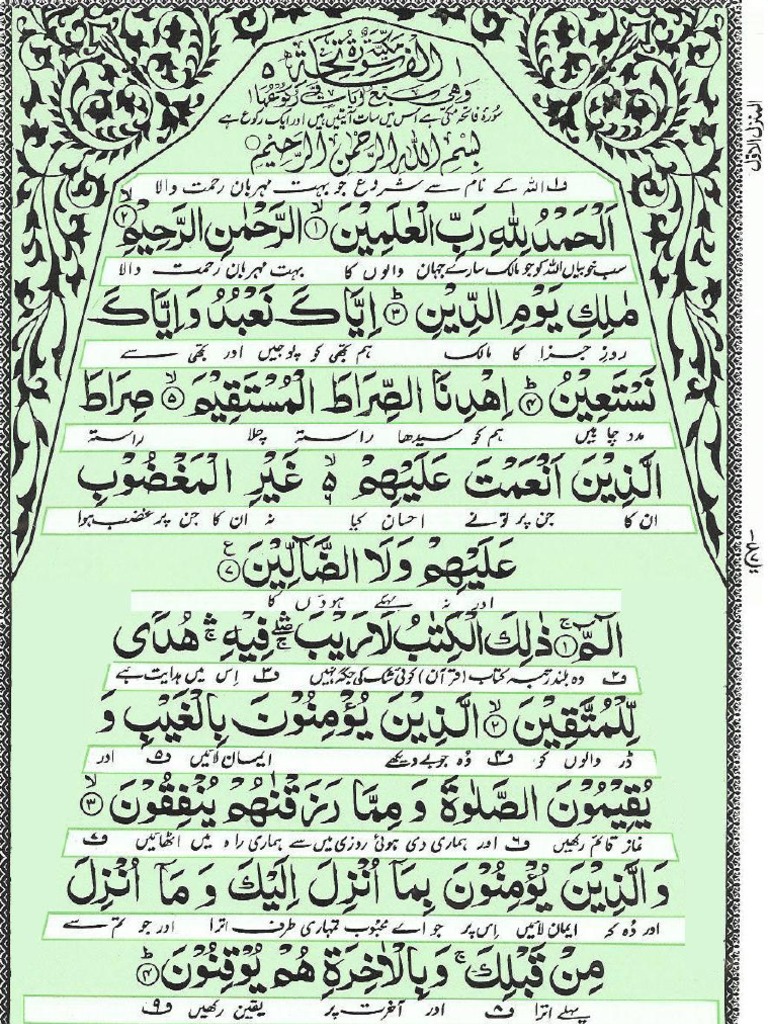 سُوْرَةُ الْفَاتِحَةِ مَكِّيَّةٌ ٥
وَهِيَ سَبْعُ اٰيَاتٍ
سورۂ فاتحہ مکی ہے اس میں سات آیتیں ہیں اور ایک رکوع ہے
بِسْمِ اللّٰهِ الرَّحْمٰنِ الرَّحِيْمِ
ف۱ اللہ کے نام سے شروع جو بہت مہربان رحمت والا
اَلْحَمْدُ لِلّٰهِ رَبِّ الْعٰلَمِيْنَ ۙ﴿۱﴾ الرَّحْمٰنِ الرَّحِيْمِ ۙ﴿۲﴾
سب خوبیاں اللہ کو جو مالک سارے جہان والوں کا بہت مہربان رحمت والا
مٰلِكِ يَوْمِ الدِّيْنِ ؕ﴿۳﴾ اِيَّاكَ نَعْبُدُ وَاِيَّاكَ
روزِ جزا کا مالک ہم تجھی کو پوجیں اور تجھی سے
نَسْتَعِيْنُ ؕ﴿۴﴾ اِهْدِنَا الصِّرَاطَ الْمُسْتَقِيْمَ ۙ﴿۵﴾ صِرَاطَ
مدد چاہیں ہم کو سیدھا راستہ چلا راستہ
الَّذِيْنَ اَنْعَمْتَ عَلَيْهِمْ ۙ۬ۙ۶ غَيْرِ الْمَغْضُوْبِ
ان کا جن پر تو نے احسان کیا نہ ان کا جن پر غضب ہوا
عَلَيْهِمْ وَلَا الضَّآلِّيْنَ ﴿۷﴾ ع
اور نہ بہکے ہوؤں کا
الٓمّٓ ۚ﴿۱﴾ ذٰلِكَ الْكِتٰبُ لَا رَيْبَ ۛۖۚ فِيْهِ ۛۚ هُدًى
ف۲ وہ بلند رتبہ کتاب (قرآن) کوئی شک کی جگہ نہیں ف۳ اس میں ہدایت ہے
لِّلْمُتَّقِيْنَ ۙ﴿۲﴾ الَّذِيْنَ يُؤْمِنُوْنَ بِالْغَيْبِ وَ
ڈر والوں کو ف۴ وہ جو بے دیکھے ایمان لائیں ف۵ اور
يُقِيْمُوْنَ الصَّلٰوةَ وَ مِمَّا رَزَقْنٰهُمْ يُنْفِقُوْنَ ۙ﴿۳﴾
نماز قائم رکھیں ف۶ اور ہماری دی ہوئی روزی میں سے ہماری راہ میں اٹھائیں ف۷
وَ الَّذِيْنَ يُؤْمِنُوْنَ بِمَآ اُنْزِلَ اِلَيْكَ وَ مَآ اُنْزِلَ
اور وہ کہ ایمان لائیں اس پر جو اے محبوب تمہاری طرف اترا اور جو تم سے
مِنْ قَبْلِكَ ۚ وَ بِالْاٰخِرَةِ هُمْ يُوْقِنُوْنَ ؕ﴿۴﴾
پہلے اترا ف۸ اور آخرت پر یقین رکھیں ف۹
المنزل الاول